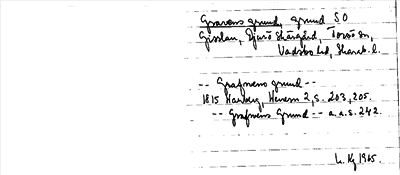 Gravens grund, grund SO
Gisslan, Djurö Skärgård, Torsö sn,
Vadsbo hd, Skarab. l.
-- Grafwens grund --
1815 Hardey, Venern 2, s. 203, 205.
-- Grafwens Grund -- a.a.s. 242.
1965.